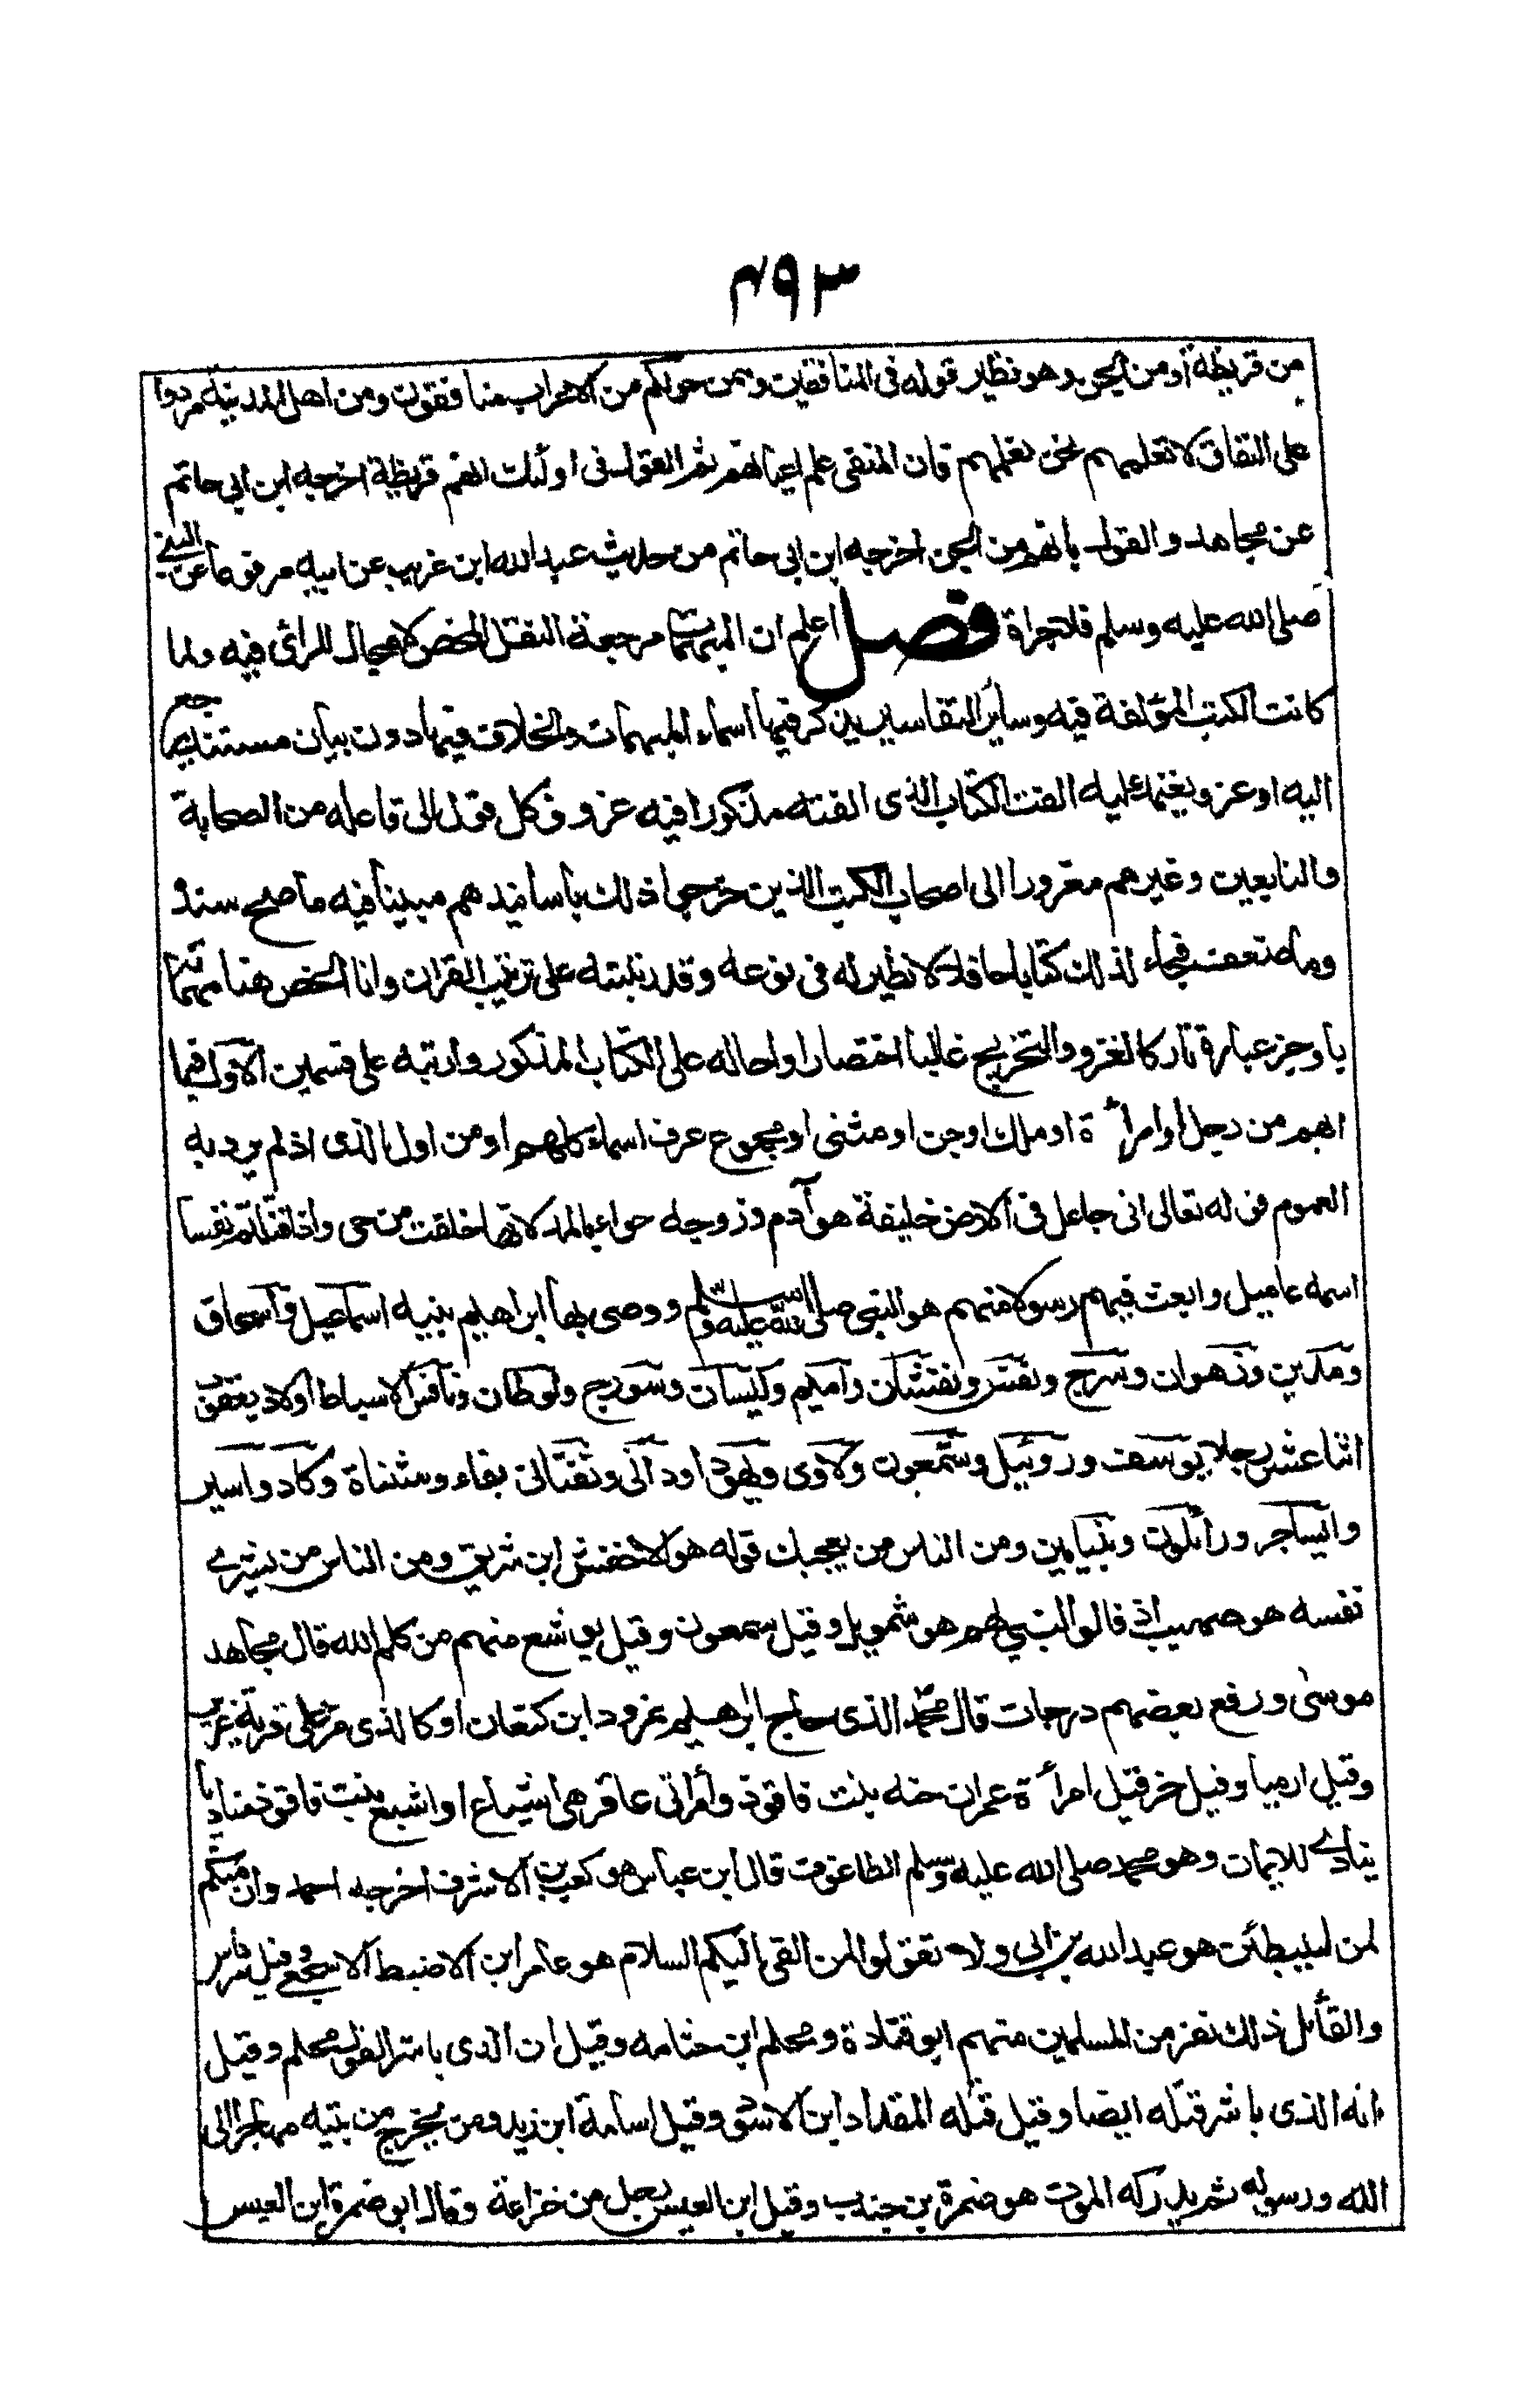 ٤٩٣
من قريظة أو من الجن وهو نظير قوله فى المنافقين وممن حولكم من الاعراب منافقون ومن اهل المدينة مردوا
على النفاق لا تعلمهم نحن نعلمهم فان المنفى علم اعيانهم ثم القول فى اولئك انهم قريظة اخرجه ابن ابي حاتم
عن مجاهد والقول بانهم من الجن اخرجه ابن ابى حاتم من حديث عبد الله ابن غريب عن ابيه مرفوعا عن النبي
صلى الله عليه وسلم فلا جراة فصل اعلم ان المبهمات مرجعة النقل المحض لا مجال للرأى فيه ولما
كانت الكتب المؤلفة فيه وسائر التفاسير يذكر فيها اسماء المبهمات والخلاف فيها دون بيان مستند يرجع
اليه او عزو يعتمد عليه الفت الكتاب الذى الفته مذكورا فيه عزو كل قول الى قائله من الصحابة
والتابعين وغيرهم معزورا الى اصحاب الكتب الذين خرجوا ذلك باسانيدهم مبينا فيه ما صح سنده
وما ضعف فجاء لذلك كتابا حافلا لا نظير له فى نوعه وقد رتبته على ترتيب القران وانا الخص هنا مهماته
باوجز عبارة تاركا لعزو والتخريج غالبا اختصارا واحاله على الكتاب المذكور وارتبه على قسمين الاول فيما
ابهم من رجل او امرأة او ملك او جن او مثنى او مجموع عرف اسماء كلهم او من اول الذى اذ لم يرد به
العموم قوله تعالى انى جاعل فى الارض خليفة هو آدم وزوجه حواء بالمد لانها خلقت من حى واذ قتلتم نفسا
اسمه عاميل وابعث فيهم رسولا منهم هو النبى صلى الله عليه وسلم ووصى بها ابراهيم بنيه اسماعيل واسحاق
ومدين وزهوان وسرج ونفش ونفشان واميم وكيسان وسورج ولوطان ونافس الاسباط اولاد يعقوب
اثنا عشر رجلا يوسف وروئيل وشمعون ولاوى ويهودا ودانى ونفتالى بفاء ومثناة وكاد واسير
وايساجر ورائلون وبنيامين ومن الناس من يعجبك قوله هو الاخنس ابن شريق ومن الناس من يشرى
نفسه هو صهيب اذ قالوا لنبي لهم هو شمويل وقيل سمعون وقيل يوشع منهم من كلم الله قال مجاهد
موسى ورفع بعضهم درجات قال محمد الذى حاج ابراهيم نمرود ابن كنعان او كالذى مر على قرية عزير
وقيل ارميا وقيل حزقيل امرأة عمران حنه بنت فاقوذ وامراتى عاقر هى اشياع او اشيع بنت فاقوذ مناديا
ينادى للايمان وهو محمد صلى الله عليه وسلم الطاغوت قال ابن عباس هو كعب بن الاشرف اخرجه احمد وان منكم
لمن ليبطئن هو عبد الله بن ابى ولا تقولوا لمن القى اليكم السلام هو عامر ابن الاضبط الاشجعى وقيل مرداس
والقائل ذلك نفر من المسلمين منهم ابو قتادة ومحلم ابن جثامه وقيل ان الذى باشر القول محلم وقيل
انه الذى باشر قتله ايضا وقيل قتله المقداد ابن الاسود وقيل اسامة ابن زيد ومن يخرج من بيته مهاجرا الى
الله ورسوله ثم يدركه الموت هو ضمرة بن جندب وقيل ابن العيص رجل من خزاعة وقال ابو ضمرة ابن العيس